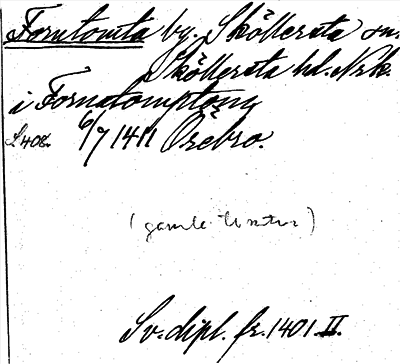 Forntomta by. Sköllersta sn.
Sköllersta hd. Nrk.
i Fornatomptom
S. 408. 6/7 1411 Örebro.
(gamle tomter)
Sv. dipl. fr. 1401 II.